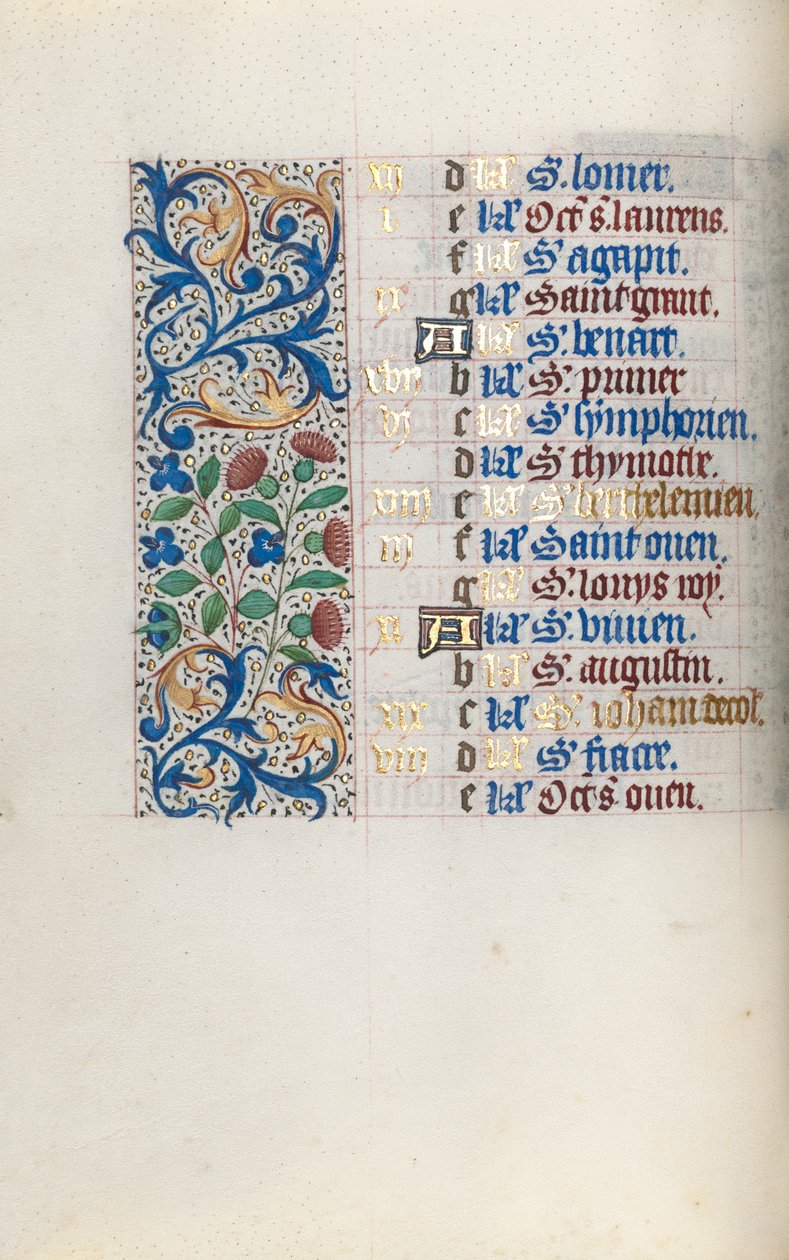 xij d kl S. lomer.
i e kl Oct s. laurens.
f kl S' agapit.
ix g kl Saint grant.
A kl S. benart.
xvij b kl S. priuier
vj c kl S' symphorien.
d kl S' thymothe.
xiiij e kl S' berthelemieu.
iij f kl Saint ouen.
g kl S. louys roy.
xi A kl S. viuien.
b kl S' augustin.
xix c kl S'. iohan decol.
viij d kl S' fiacre.
e kl Oct s. ouen.